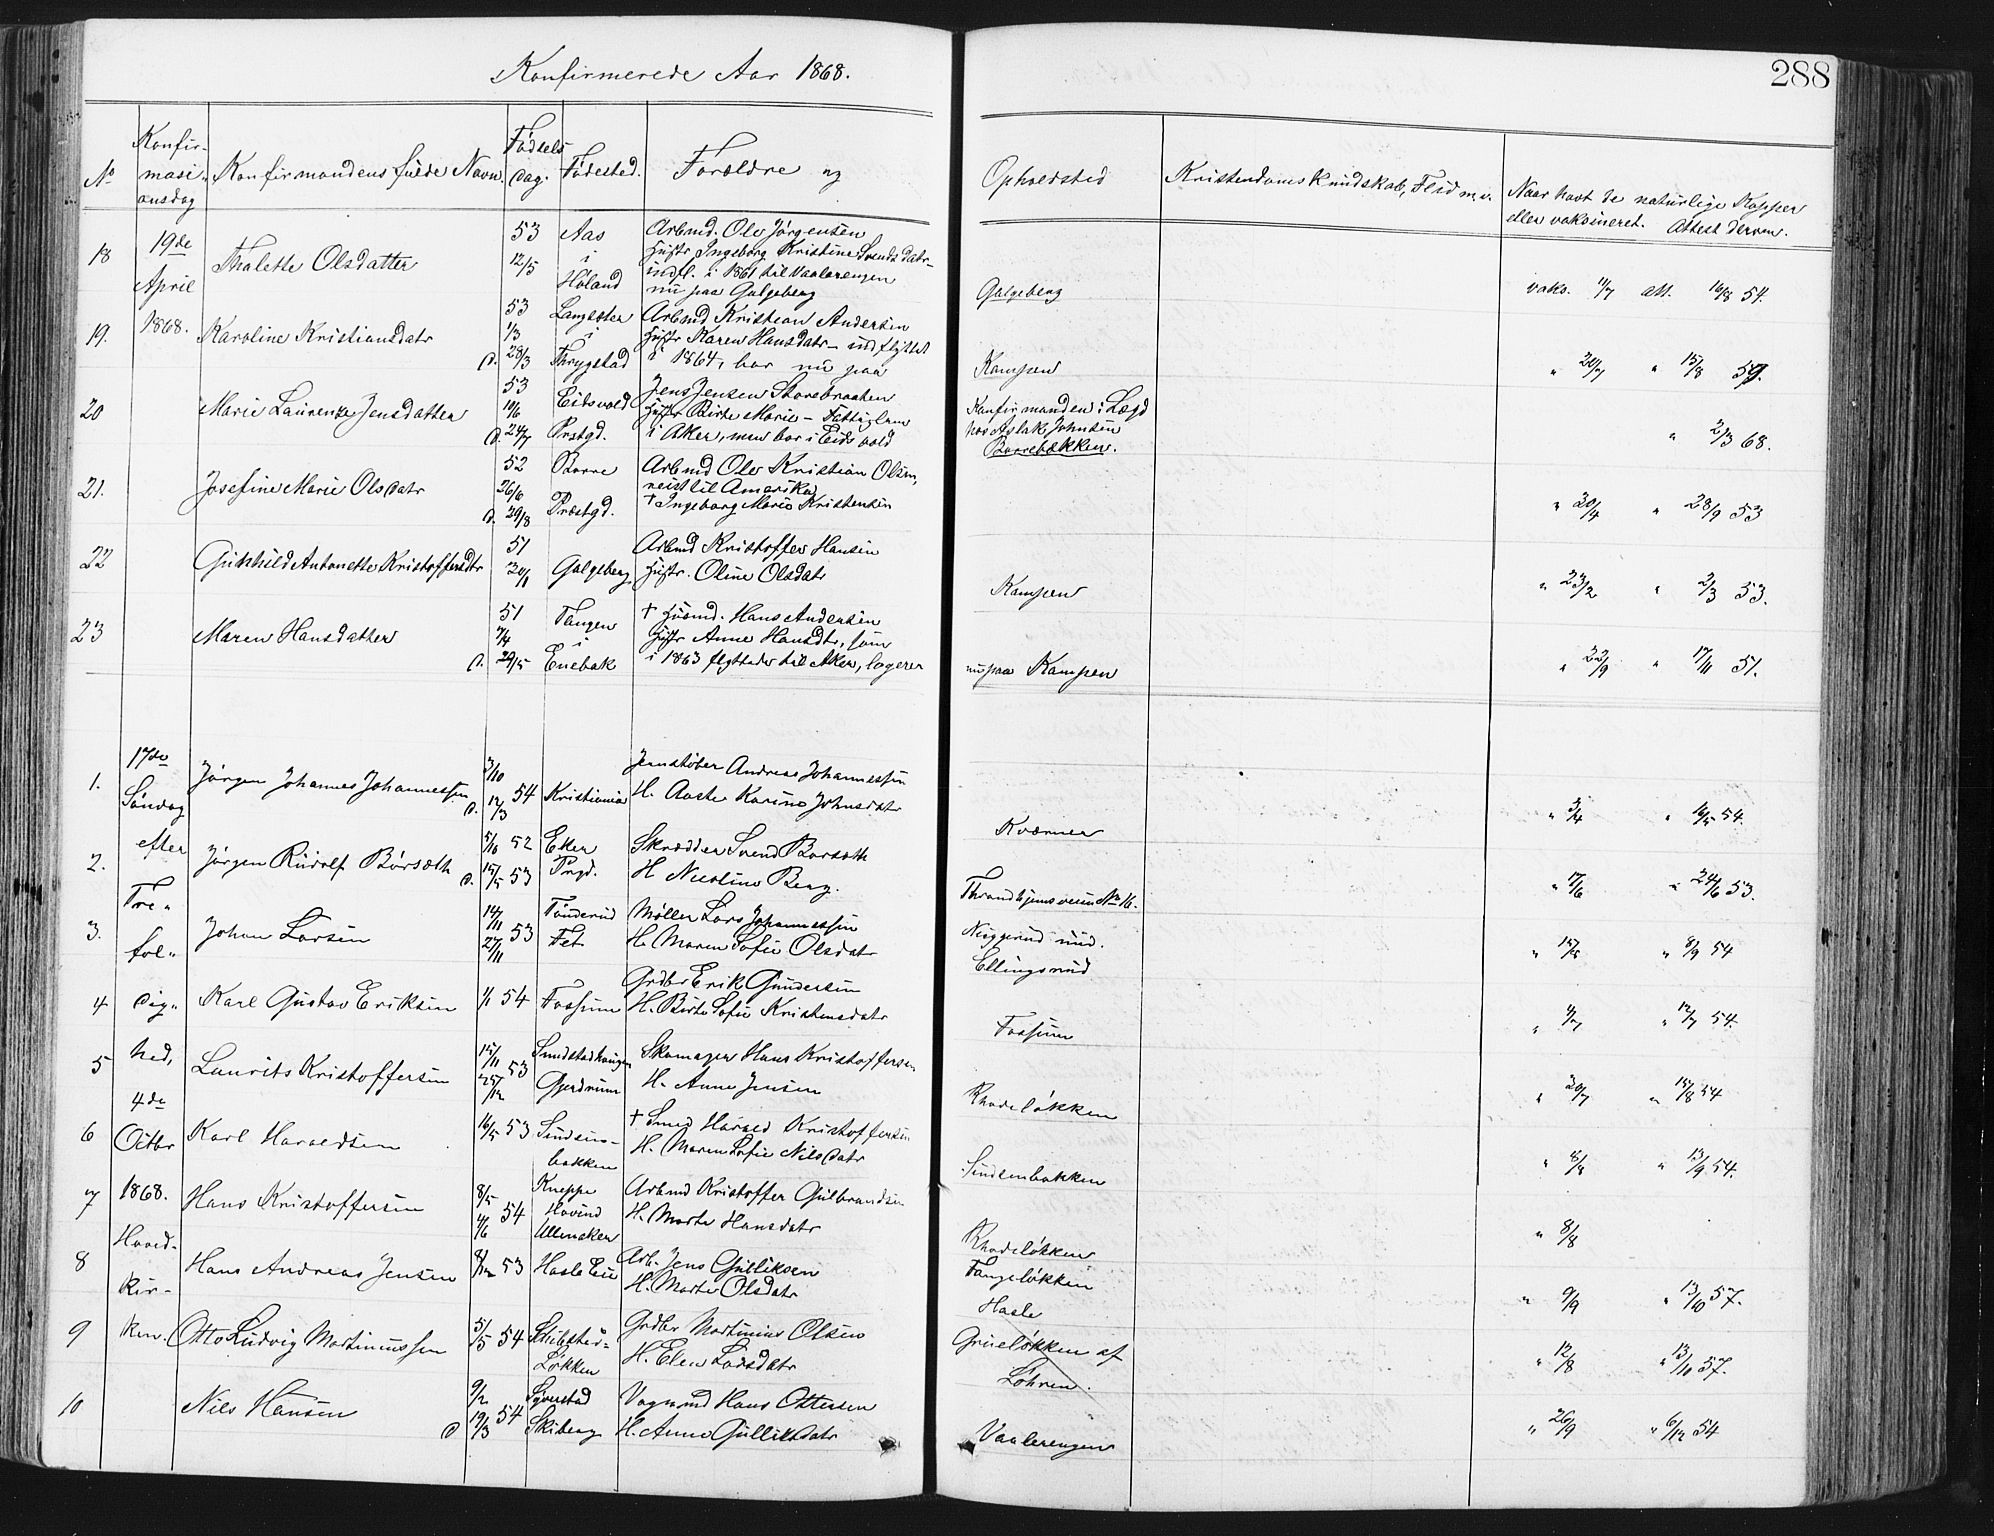 Konfirmerede Aar 1868.
288
No
Konfir-
masi-
onsdag
Konfirmandens fulde Navn.
Fødsels
dag.
Fødested.
Forældre og
Opholdsted
Kristendoms Kundskab, Flid m.v.
Naar havt de naturlige Kopper
eller vaksineret. Attest derom.
19de
April
1868.
18 Thalette Olsdatter
53
12/5
Aas
i
Høland
Arbmd. Ole Jørgensen
Hustr Ingeborg Kristine Svendsdatr-
indfl. i 1861 til Vaalerengen
nu paa Galgeberg
Galgeberg
vaks. 11/7 att. 16/8 54.
19. Karoline Kristiansdatr
53
1/3
d. 28/3
Langsæter
i
Thrygstad
Arbmd Kristian Andersen
Hustr Karen Hansdatr - indflyttet
i 1864, bor nu paa
Kampen
" 20/7 " 15/8 59.
20 Marie Laurenza Jensdatter
53
10/6
d. 24/7
Eidsvold
Prstgd.
Jens Jensen Storebraaten
Hustr Birte Marie - Fattiglem
i Aker, men bor i Eidsvold
Konfirmanden i Lægd
hos Aslak Johnsen
Borrebækken.
" 2/3 68.
21. Josefine Marie Olsdatr
52
26/6
d. 29/8
Borre
Præstgd.
Arbmd Ole Kristian Olsen,
reist til Amerika
+ Ingeborg Marie Kristensen
" 30/4 " 28/9 53
22 Gunhild Antonette Kristoffersdtr
51
Galgeberg
Arbmd Kristoffer Hansen
Hustr. Oline Olsdatr
Kampen
" 23/2 " 2/3 53.
23 Maren Hansdatter
51
7/4
d. 29/5
Tangen
i
Enebak
+ Husmd. Hans Andersen
Hustr Anne Hansdtr, som
i 1863 flyttede til Aker, logerer
nu paa Kampen
" 22/9 " 17/11 51.
17de
Søndag
efter
Tre-
fol-
dig-
hed,
4de
Octbr
1868.
Hoved-
kir-
ken.
1. Jørgen Johannes Johannessen
3/10
d. 12/3 54
Kristiania
Jernstøber Andreas Johannessen
H. Aaste Karine Johnsdatr
Kværner
" 3/4 " 16/5 54.
2. Jørgen Rudolf Børseth
5/10 52
d. 15/5 53
Eker
Prgd.
Skrædder Svend Børseth
H Nicoline Berg.
Throndhjemsveien No 16.
" 17/6 " 24/6 53.
3. Johan Larsen
14/11 53
27/11
Tønderud
Fet
Møller Lars Johannessen
H. Maren Sofie Olsdatr
Nuggerud und.
Ellingsrud
" 8/9 54
4 Karl Gustav Eriksen
1/1 54
Fossum
Grdbr Erik Gundersen
H. Birte Sofie Kristensdatr
Fossum
" 4/7 " 12/7 54.
5 Laurits Kristoffersen
15/11 53
25/12
Sundstadhaugen
Gjerdrum
Skomager Hans Kristoffersen
H. Anne Jensen
Rhodeløkken
" 30/7 " 15/8 54
6 Karl Haraldsen
16/5 53
Sindsen-
bakken
+ Smed Harald Kristoffersen
H. Maren Sofie Nilsdatr
Sindsenbakken
" 8/8 " 13/9 54.
7 Hans Kristoffersen
8/5 54
4/6
Kneppe
Hovind
Ullensaker
Arbmd Kristoffer Gulbrandsen
H. Marte Hansdatr
Rhodeløkken
" 8/8
8 Hans Andreas Jensen
8/12 53
Hasle Eie
Arb. Jens Gulliksen
H. Marte Olsdatr
Tangeløkken
Hasle
" 9/9 " 13/10 57.
9 Otto Ludvig Martiniussen
5/5 54
Skibsted-
Løkken
Grdbr Martinius Olsen
H. Elen Larsdatr
Grueløkken af
Løhren.
" 12/8 " 13/10 57.
10 Nils Hansen
9/2
d 19/3 54
Syverstad
Skiberg
Vognmd Hans Ottersen
H. Anne Gulliksdatr
Vaalerengen
" 26/9 " 6/12 54